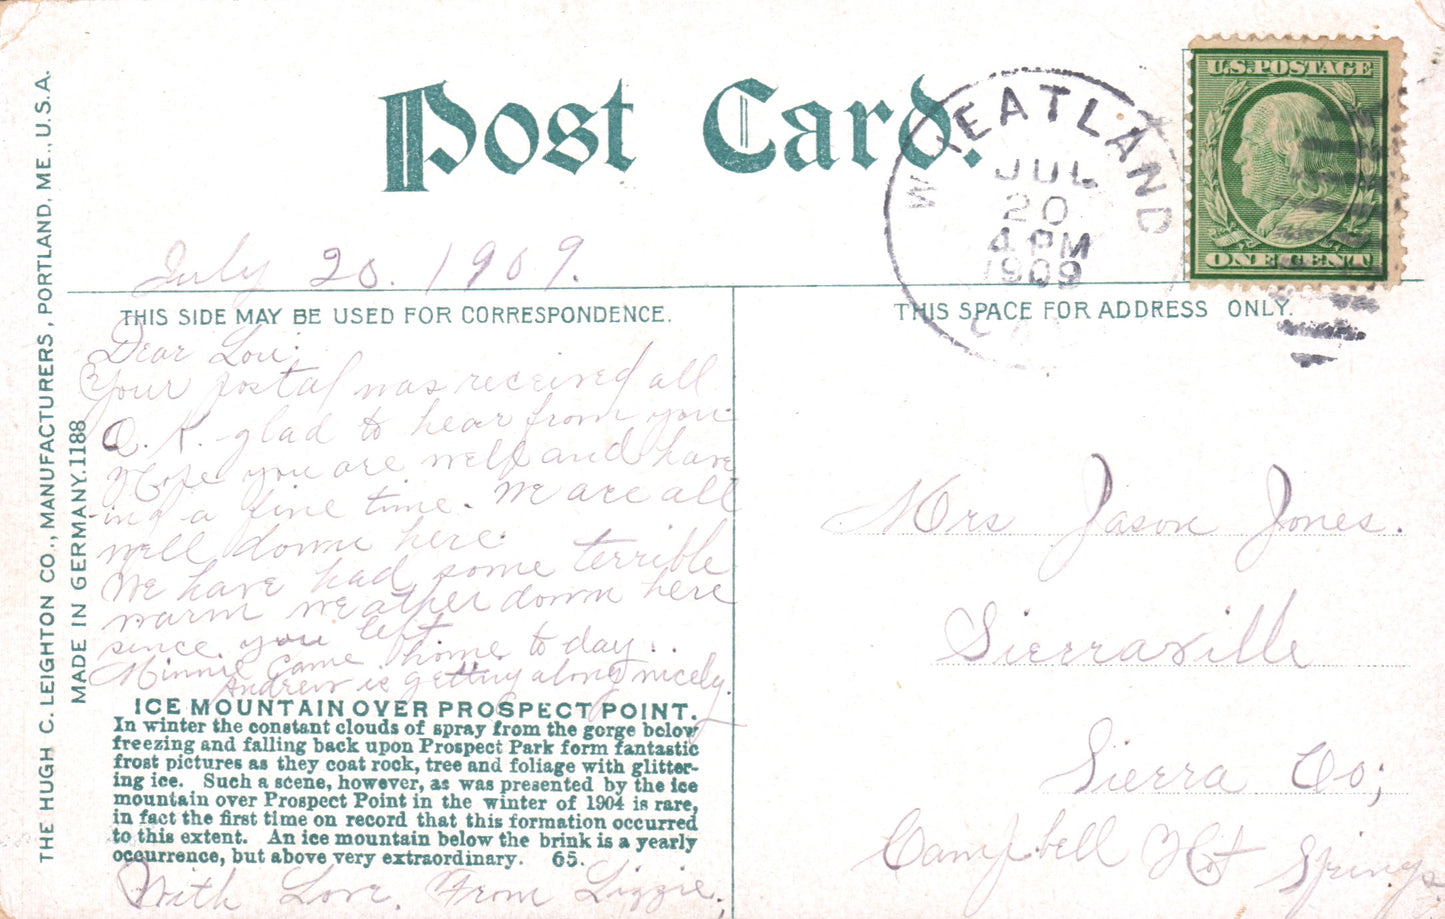 Post Card.
U.S. POSTAGE
ONE CENT
WHEATLAND
JUL
20
4 PM
1909
CAL
July 20. 1909.
THIS SIDE MAY BE USED FOR CORRESPONDENCE.
THIS SPACE FOR ADDRESS ONLY.
Dear Lou:
Your postal was received all
O. K. - glad to hear from you.
Hope you are well and hav
-ing a fine time. We are all
well down here.
We have had some terrible
warm weather down here
since you left.
Minnie came home to day..
Andrew is getting along nicely.
ICE MOUNTAIN OVER PROSPECT POINT.
In winter the constant clouds of spray from the gorge below
freezing and falling back upon Prospect Park form fantastic
frost pictures as they coat rock, tree and foliage with glitter-
ing ice. Such a scene, however, as was presented by the ice
mountain over Prospect Point in the winter of 1904 is rare,
in fact the first time on record that this formation occurred
to this extent. An ice mountain below the brink is a yearly
occurrence, but above very extraordinary. 65.
With Love. From Lizzie.
Mrs Jason Jones.
Sierraville
Sierra Co;
Campbell Hot Springs
THE HUGH C. LEIGHTON CO., MANUFACTURERS, PORTLAND, ME., U.S.A.
MADE IN GERMANY. 1188